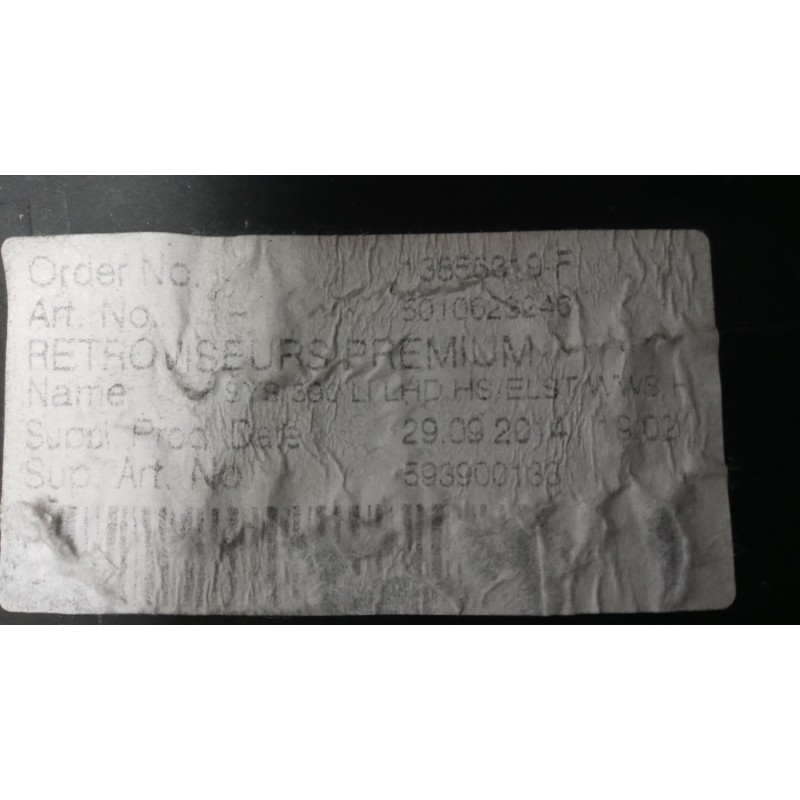 Order No. 13656819-F
Art. No. 5010623246
RETROVISEURS PREMIUM
Name LI LHD HS/ELST/WWS
Suppl Prod. Date 29.09.2014 9:02
Sup. Art. No 593900133